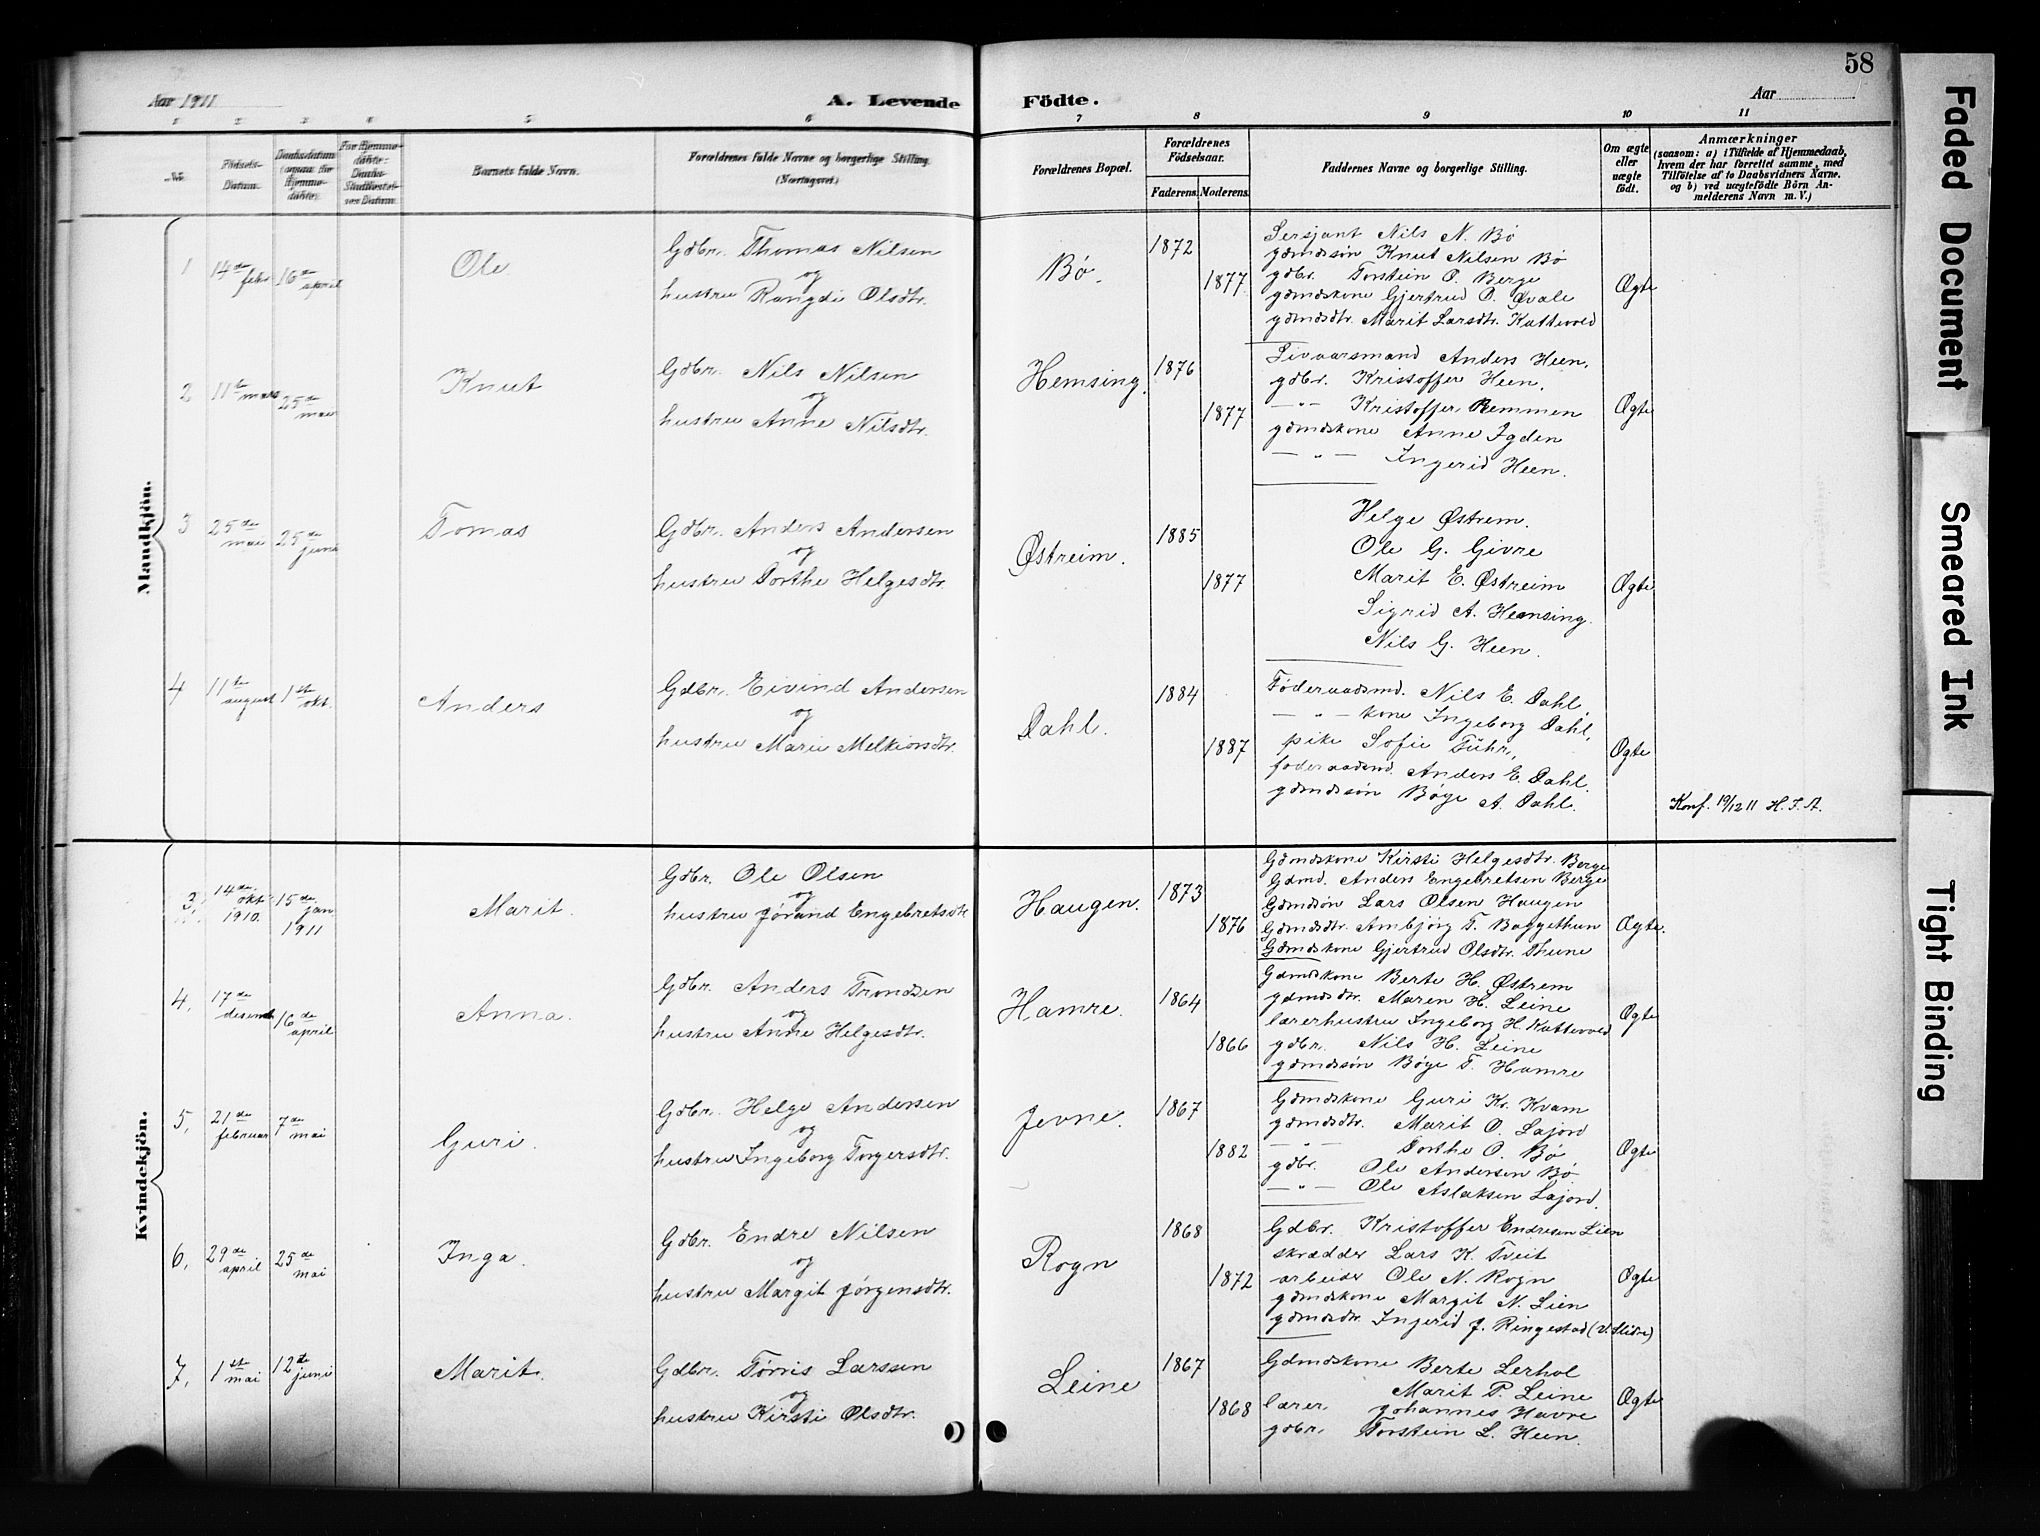 58
Aar 1911
A. Levende Födte.
Aar
1 2 3 4 5 6 7 8 9 10 11
No.
Födsels-Datum.
Daabsdatum (ogsaa for Hjemmedöbte).
For Hjemmedöbte: Daabs-Stadfæstelses Datum.
Barnets fulde Navn.
Forældrenes fulde Navne og borgerlige Stilling. (Næringsvei.)
Forældrenes Bopæl.
Forældrenes Födselsaar.
Faderens. Moderens.
Faddernes Navne og borgerlige Stilling.
Om ægte eller uægte födt.
Anmærkninger
(saasom: a) i Tilfælde af Hjemmedaab, hvem der har forrettet samme, med Tilföielse af to Daabsvidners Navne. og b) ved uægtefödte Börn Anmelderens Navn m. V.)
Mandkjön.
1 14de febr 16de april Ole. Gdbr. Thomas Nilsen
og
hustru Rangdi Olsdtr. Bø. 1872 1877
Sersjant Nils N. Bø
gdmdssøn Knut Nilsen Bø
gdbr. Torstein O. Berge
gdmdskone Gjertrud O. Qvale
gdmdsdtr. Marit Larsdtr. Kattevold
Ægte
2 11te mars 25de mai Knut Gdbr. Nils Nilsen
og
hustru Anne Nilsdtr. Hemsing. 1876 1877
Anders Heen.
gdbr. Kristoffer Heen.
— " — Kristoffer Remmen
gdmdskone Anne Igden
— " — Ingerid Heen.
Ægte
3 25de mai 25de juni Tomas Gdbr. Anders Andersen
og
hustru Dorthe Helgesdtr. Østreim. 1885 1877
Helge Østrem.
Ole G. Givre
Marit E. Østreim
Sigrid A. Hemsing.
Nils G. Heen.
Ægte
4 11te august 1ste okt. Anders Gdbr. Eivind Andersen
og
hustru Marie Melkiorsdtr. Dahl. 1884 1887
Føderaadsmd. Nils E. Dahl.
— " — kone Ingeborg Dahl,
pike Sofie Führ,
føderaadsmd. Anders E. Dahl.
gdmdssøn Bøye A. Dahl.
Ægte
Konf. 19/12 11 H. F. A.
Kvindekjön.
3. 14de okt 1910. 15de jan 1911 Marit. Gdbr. Ole Olsen
og
hustru Jørand Engebretsdtr Haugen. 1873 1876
Gdmdskone Kirsti Helgesdtr. Berge
Gdmd. Anders Engebretsen Berge
Gdmdssøn Lars Olsen Haugen
Gdmdsdtr. Ambjørg T. Baggethun
Gdmdskone Gjertrud Olsdtr. Thune
Ægte.
4. 17de desemb 16de april Anna. Gdbr. Anders Trondsen
og
hustru Anne Helgesdtr. Hamre. 1864 1866
Gdmdskone Berte H. Østrem
gdmdsdtr. Maren H. Leine
lærerhustru Ingeborg H. Kattevold
gdbr. Nils H. Leine
gdmdssøn Bøye T. Hamre
Ægte
5. 21de februar 7de mai Guri. Gdbr. Helge Andersen
og
hustru Ingeborg Torgersdtr. Jevne. 1867 1882
Gdmdskone Guri Kr. Kvam
gdmdsdtr. Marit O. Lajord
— " — Dorthe O. Bø
gdbr. Ole Andersen Bø.
— " — Ole Aslaksen Lajord.
Ægte
6. 29de april 25de mai Inga. Gdbr. Endre Nilsen
og
hustru Margit Jørgensdtr. Rogn 1868 1872
Gdbr. Kristoffer Endresen Lien
skrædder Lars K. Tveit
arbeider Ole N. Rogn
gdmdskone Margit N. Lien
gdmdsdtr. Ingerid J. Ringestad (V. Slidre)
Ægte
7. 1ste mai 12te juni Marit. Gdbr. Tørris Larssen
og
hustru Kirsti Olsdtr. Leine 1867 1868
Gdmdskone Berte Lerhol
Marit P. Leine
lærer Johannes Havre
gdbr. Torstein L. Heen.
Ægte
Faded Document
Smeared Ink
Tight Binding